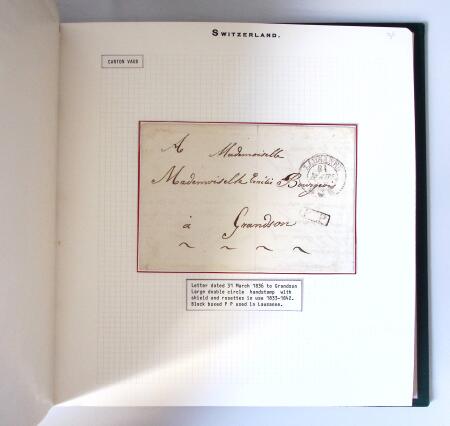 SWITZERLAND.
CANTON VAUD
A Mademoiselle
Mademoiselle Emilie Bourgeois
à Grandson
LAUSANNE
31
MARS
P.P.
Letter dated 31 March 1836 to Grandson
Large double circle handstamp with
shield and rosettes in use 1833-1842.
Black boxed P P used in Lausanne.